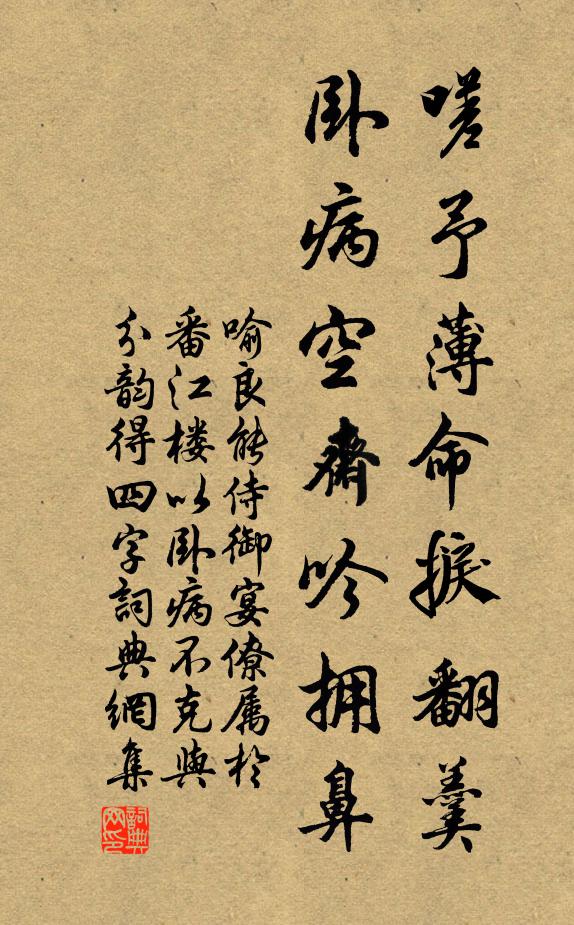 嗟予薄命捩翻羹
卧病空齋吟拥鼻
喻良能侍御宴僚属於
番江楼以卧病不克與
分韵得四字詞典網集
詞典網印